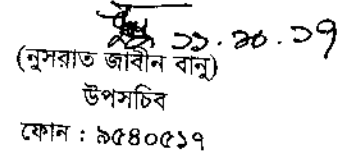 ১১.১০.১৭
(নুসরাত জাবীন বানু)
উপসচিব
ফোন : ৯৫৪০৫১৭